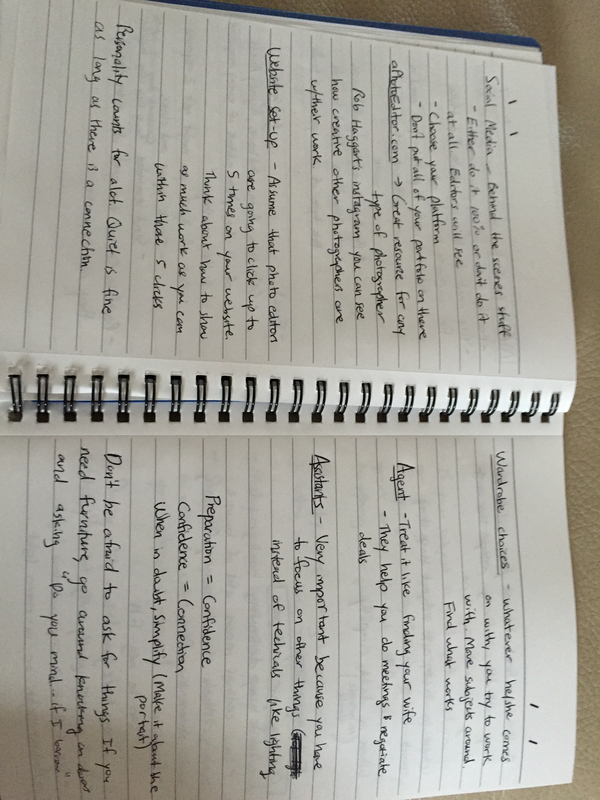 Social Media - Behind the scenes stuff
- Either do it 100% or don't do it
at all Editors will see
- Choose your platform
- Don't put all of your portfolio on there
aPhotoEditor.com → Great resource for any
type of photographer
Rob Haggart's instagram you can see
how creative other photographers are
w/their work
Website Set-up - Assume that photo editors
are going to click up to
5 times on your website.
Think about how to show
as much work as you can
within those 5 clicks
Personality counts for alot. Quiet is fine
as long as there is a connection
Wardrobe choices - whatever he/she comes
on with, you try to work
with. More subjects around.
Find what works
Agent - Treat it like finding your wife
- They help you do meetings & negotiate
deals
Assistants - Very important because you have
to focus on other things
instead of technicals like lighting
Preparation = Confidence
Confidence = Connection
When in doubt, simplify (Make it about the
portrait)
Don't be afraid to ask for things If you
need furniture, go around knocking on doors
and asking "Do you mind... if I borrow"